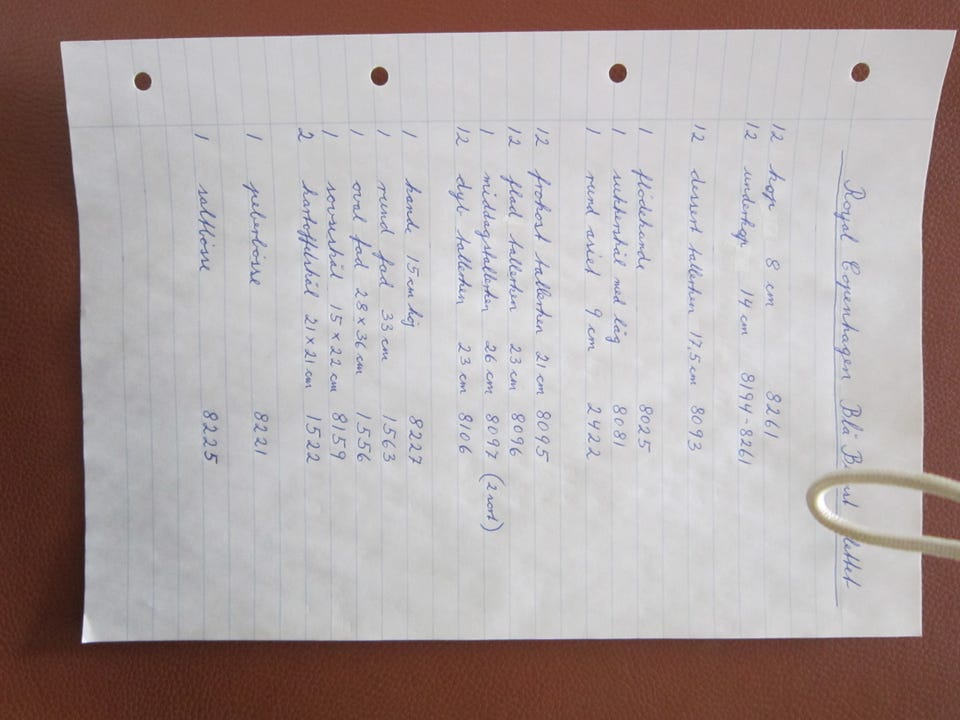 Royal Copenhagen Blå
12 kop 8 cm 8261
12 underkop 14 cm 8194-8261
12 dessert tallerken 17,5 cm 8093
1 flødekande 8025
1 sukkerskål med låg 8081
1 rund asiet 9 cm 2422
12 frokost tallerken 21 cm 8095
12 flad tallerken 23 cm 8096
1 middagstallerken 26 cm 8097 (2 sort)
12 dyb tallerken 23 cm 8106
1 kande 15 cm høj 8227
1 rund fad 33 cm 1563
1 oval fad 28 x 36 cm 1556
1 sovseskål 15 x 22 cm 8159
2 kartoffelskål 21 x 21 cm 1522
1 peberbøsse 8221
1 saltbøsse 8225